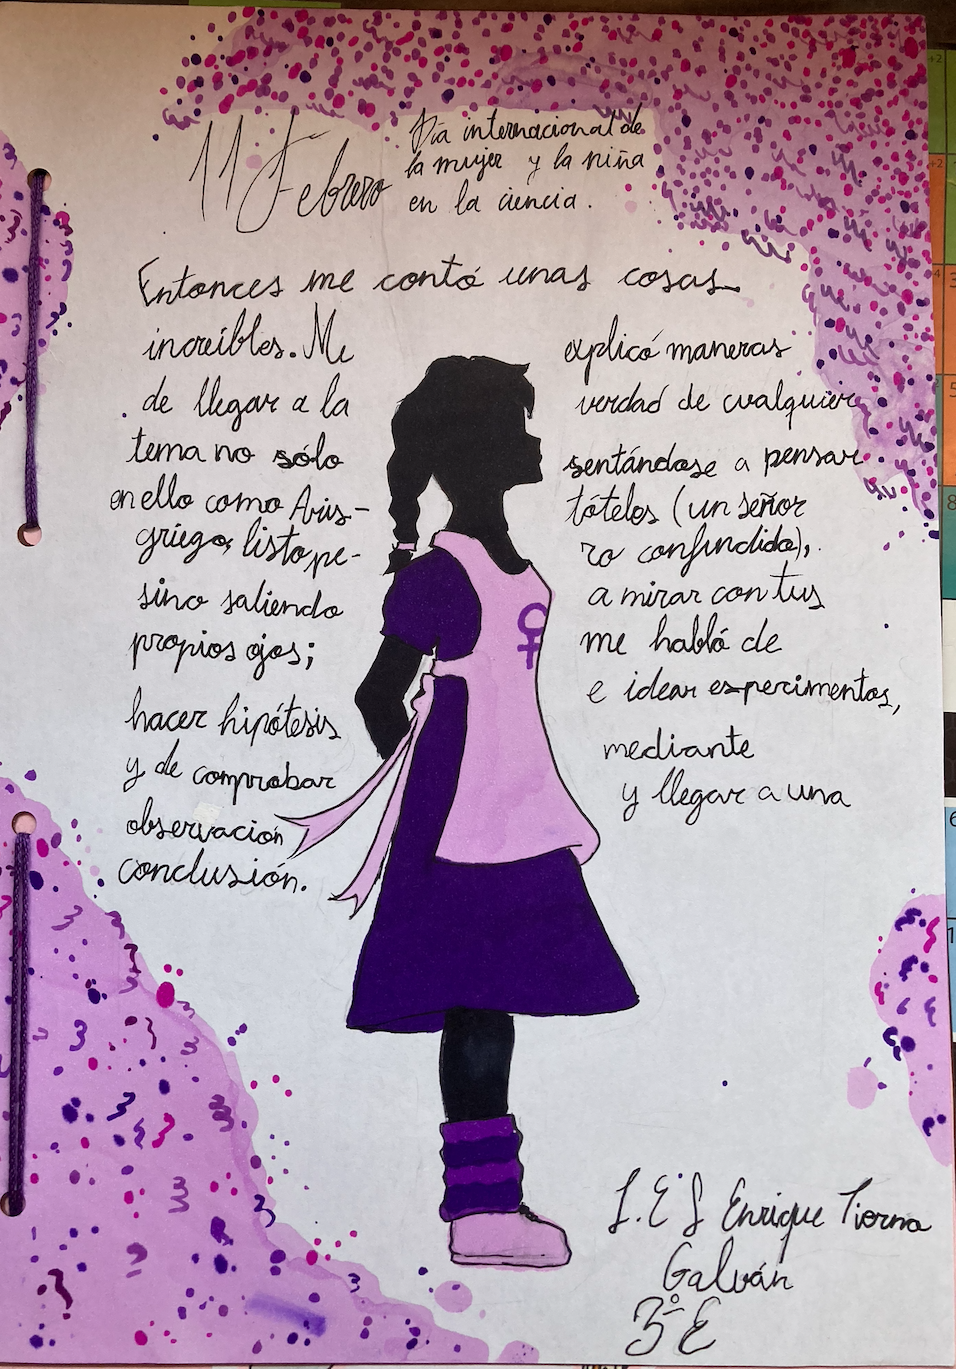 11 Febrero
Día internacional de
la mujer y la niña
en la ciencia.
Entonces me contó unas cosas
increíbles. Me explicó maneras
de llegar a la verdad de cualquier
tema no sólo sentándose a pensar
en ello como Aris- tóteles (un señor
griego, listo pe- ro confundido),
sino saliendo a mirar con tus
propios ojos; me habló de
hacer hipótesis e idear experimentos,
y de comprobar mediante
observación y llegar a una
conclusión.
I.E.S Enrique Tierno
Galván
3º E